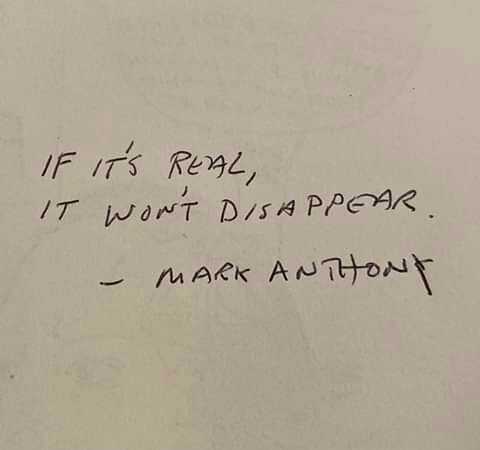 IF IT'S REAL,
IT WON'T DISAPPEAR.
- MARK ANTHONY